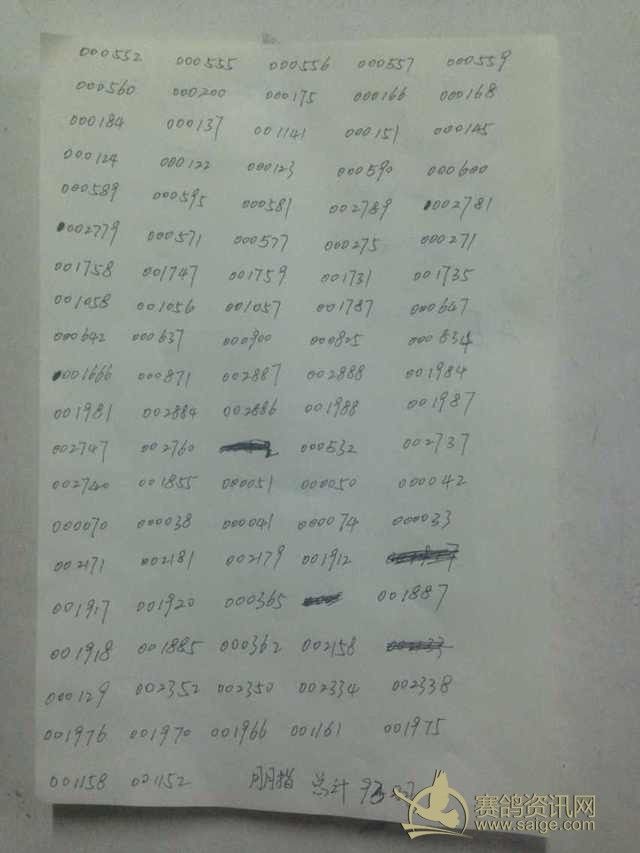 000552 000555 000556 000557 000559
000560 000200 000175 000166 000168
000184 000137 001141 000151 000145
000124 000122 000123 000590 000600
000589 000595 000581 002789 002781
002779 000571 000577 000275 000271
001758 001747 001759 001731 001735
001058 001056 001057 001787 000647
000642 000637 000900 000825 000834
001666 000871 002887 002888 001984
001981 002884 002886 001988 001987
002747 002760 000532 002737
002740 001855 000051 000050 000042
000070 000038 000041 000074 000033
002171 002181 002179 001912
001917 001920 000365 001887
001918 001885 000362 002158
000129 002352 002350 002334 002338
001976 001970 001966 001161 001975
001158 001152 总计
赛鸽资讯网
www.saige.com